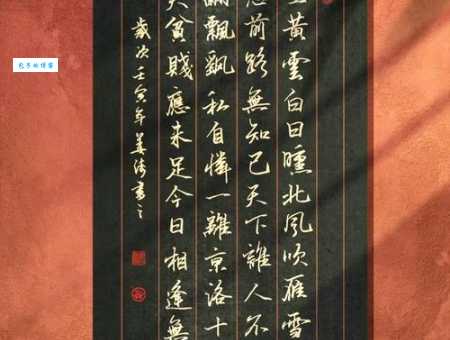 黃雲白日曛北風吹雁雪
愁前路無知己天下誰人不
翮飄飄私自憐一離京洛十
夫貧賤應未足今日相逢無
歲次壬寅年姜書之
的博客